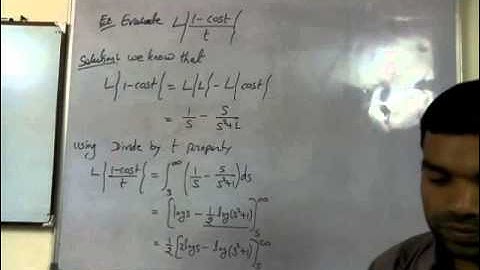 Ex Evaluate L{1-cost/t}
Solution: we know that
L{1-cost} = L{1} - L{cost}
= 1/S - S/S²+1
using Divide by t property
L{1-cost/t} = ∫_S^∞ (1/S - S/S²+1) ds
= [logs - 1/2 log(s²+1)]_S^∞
= 1/2 [2logs - log(s²+1)]_S^∞